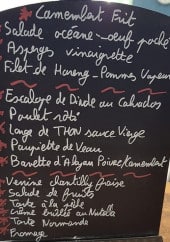 Camembert Frit
Salade océane - oeuf poché
Asperges vinaigrette
Filet de Hareng - Pommes Vapeur
Escalope de Dinde au Calvados
Poulet rôti
Longe de THON sauce Vierge
Paupiette de Veau
Bavette d'Aloyau Poivre/Camembert
Verrine chantilly fraise
Salade de fruits
Tarte à la
Crème brûlée au Nutella
Tarte Normande
Fromage